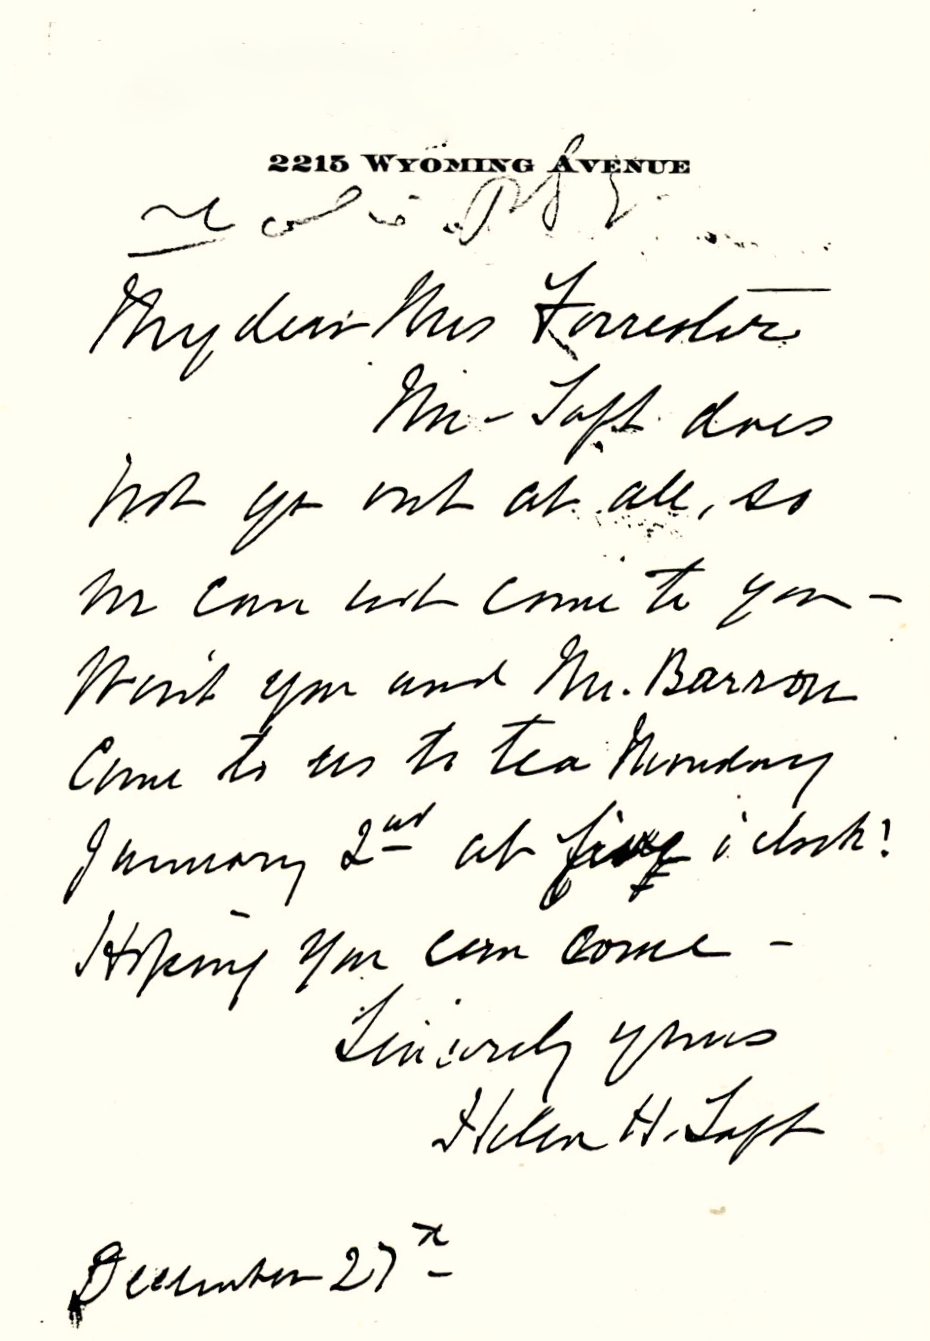 2215 WYOMING AVENUE
My dear Mrs Forrester
Mr - Taft does
not go out at all, so
we can not come to you -
Won't you and Mr. Barron
Come to us to tea Monday
January 2nd at five o'clock!
Hoping you can come -
Sincerely yours
Helen H. Taft
December 27th